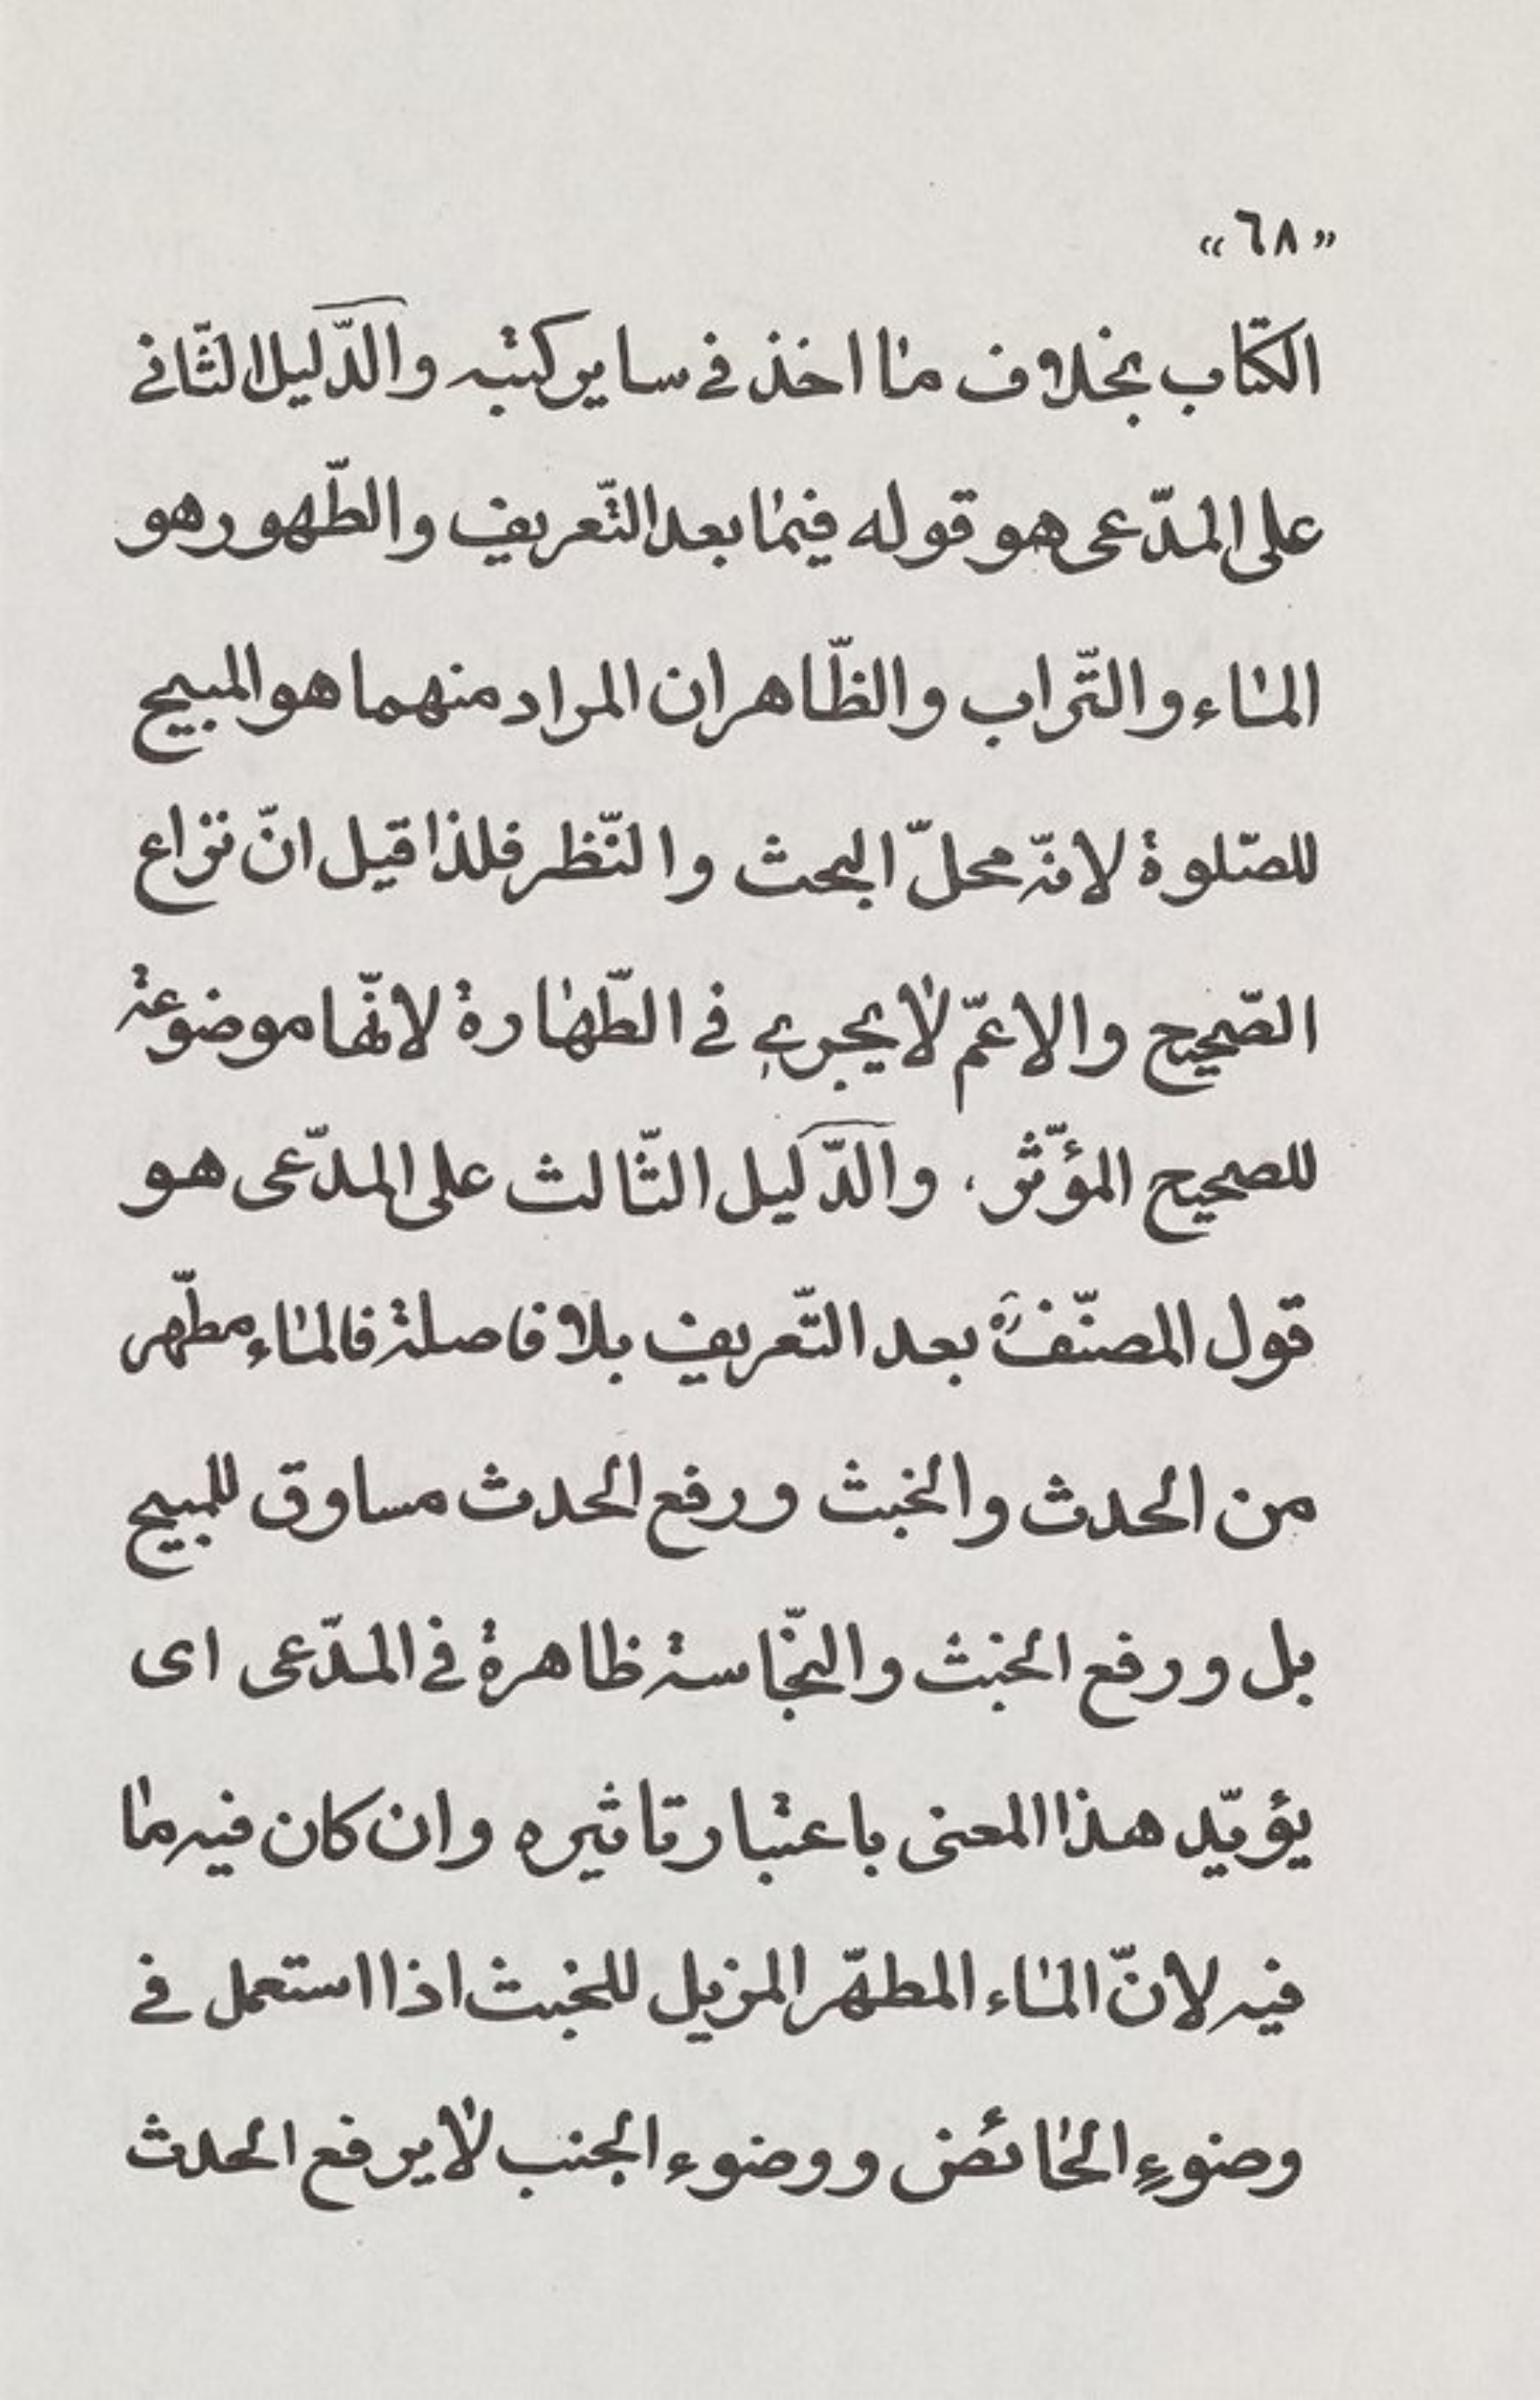 «٦٨»
الكتاب بخلاف ما اخذ في ساير كتبه والدّليل الثّاني
على المدّعى هو قوله فيما بعد التّعريف والطّهور هو
الماء والتّراب والظّاهر ان المراد منهما هو المبيح
للصّلوة لانّه محلّ البحث والنّظر فلذا قيل انّ نزاع
الصّحيح والاعمّ لا يجري في الطّهارة لانّها موضوعة
للصحيح المؤثّر. والدّليل الثّالث على المدّعى هو
قول المصنّفؒه بعد التّعريف بلا فاصلة فالماء مطهّر
من الحدث والخبث ورفع الحدث مساوق للمبيح
بل ورفع الخبث والنّجاسة ظاهرة في المدّعى اى
يؤيّد هذا المعنى باعتبار تاثيره وان كان فيه ما
فيه لانّ الماء المطهّر المزيل للخبث اذا استعمل في
وضوءِ الحائض ووضوء الجنب لا يرفع الحدث